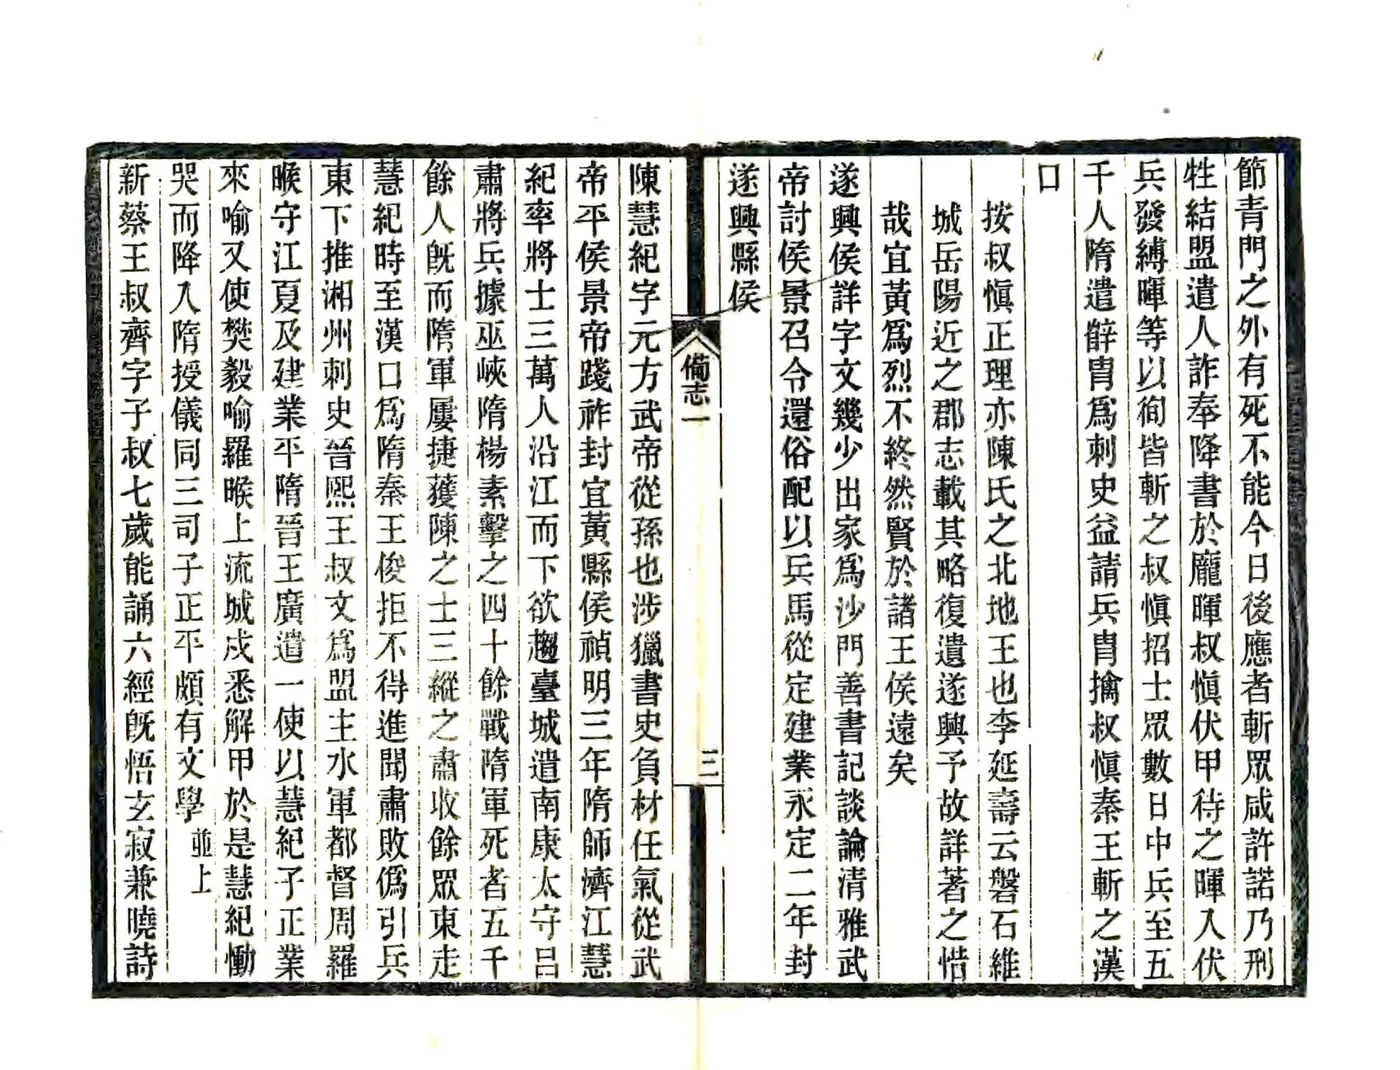 節青門之外有死不能今日後應者斬眾咸許諾乃刑
牲結盟遣人詐奉降書於龐暉叔愼伏甲待之暉入伏
兵發縛暉等以徇皆斬之叔愼招士眾數日中兵至五
千人隋遣薛胄爲刺史益請兵胄擒叔愼秦王斬之漢
口
按叔愼正理亦陳氏之北地王也李延壽云磐石維
城岳陽近之郡志載其略復遺遂興予故詳著之惜
哉宜黃爲烈不終然賢於諸王侯遠矣
遂興侯詳字文幾少出家爲沙門善書記談論清雅武
帝討侯景召令還俗配以兵馬從定建業永定二年封
遂興縣侯
備志一
三
陳慧紀字元方武帝從孫也涉獵書史負材任氣從武
帝平侯景帝踐祚封宜黃縣侯禎明三年隋師濟江慧
紀率將士三萬人沿江而下欲趨臺城遣南康太守呂
肅將兵據巫峽隋楊素擊之四十餘戰隋軍死者五千
餘人旣而隋軍屢捷獲陳之士三縱之肅收餘眾東走
慧紀時至漢口爲隋秦王俊拒不得進聞肅敗僞引兵
東下推湘州刺史晉熙王叔文爲盟主水軍都督周羅
㬋守江夏及建業平隋晉王廣遣一使以慧紀子正業
來喻又使樊毅喻羅㬋上流城戍悉解甲於是慧紀慟
哭而降入隋授儀同三司子正平頗有文學並上
新蔡王叔齊字子叔七歲能誦六經旣悟玄寂兼曉詩